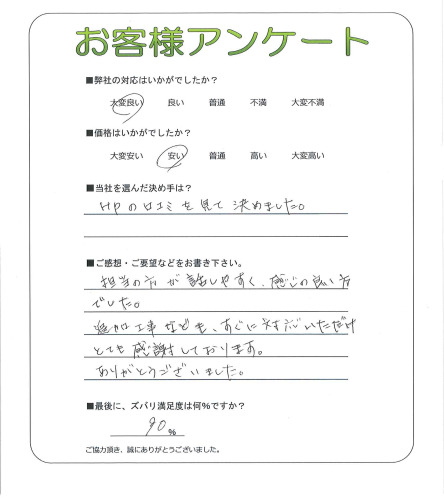 お客様アンケート
■弊社の対応はいかがでしたか？
大変良い 良い 普通 不満 大変不満
■価格はいかがでしたか？
大変安い 安い 普通 高い 大変高い
■当社を選んだ決め手は？
HPの口コミを見て決めました。
■ご感想・ご要望などをお書き下さい。
担当の方が話しやすく、感じの良い方
でした。
追加工事なども、すぐに対応いただけ
とても感謝しております。
ありがとうございました。
■最後に、ズバリ満足度は何%ですか？
90%
ご協力頂き、誠にありがとうございました。